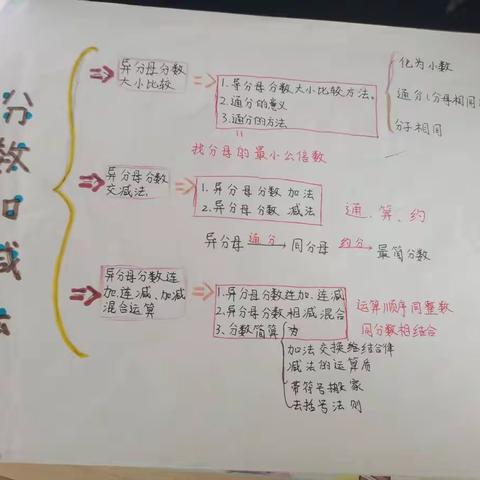 分数加减法
异分母分数
大小比较
1.异分母分数大小比较方法。
2.通分的意义
3.通分的方法
化为小数
通分(分母相同
分子相同
找分母的最小公倍数
异分母分数
交减法.
1.异分母分数 加法
2.异分母分数 减法
通、算、约
异分母 通分 同分母 约分 最简分数
异分母分数连
加.连减、加减
混合运算
1.异分母分数连加.连减
2.异分母分数相减混合
3.分数简算
运算顺序同整数
同分数相结合
加法交换结合律
减法的运算质
带符号搬家
去括号法则